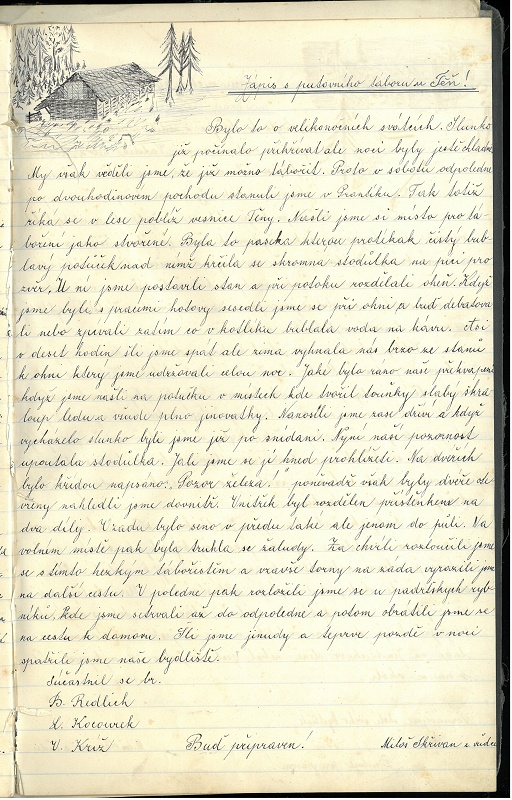 Zápis s putovního táboru u Těň!
Bylo to o velikonočních svátcích. Slunko
již počínalo přihřívat ale noci byly ještě chladné
My však věděli jsme, že již možno tábořit. Proto v sobotu odpoledne
po dvouhodinovém pochodu stanuli jsme v Prantíku. Tak totiž
říká se v lese poblíž vesnice Těny. Našli jsme si místo pro tá-
boření jako stvořené. Byla to paseka kterou protékak čistý bub-
lavý potůček nad nímž krčila se skromná stodůlka na píci pro
zvěř. U ní jsme postavili stan a při potoku rozdělali oheň. Když
jsme byli s pracemi hotovy sesedli jsme se při ohni a buď debatova
li nebo zpívali zatím co v kotlíku bublala voda na kávu. Asi
v deset hodin šli jsme spát ale zima vyhnala nás brzo ze stanů
k ohni který jsme udržovali celou noc. Jaké bylo ráno naše překvapení
když jsme našli na potůčku v místech kde tvořil touňky slabý škra
loup ledu a všude plno jinovatky. Nanosili jsme zase dříví a když
vycházelo slunko byli jsme již po snídani. Nyní naši pozornost
upoutala stodůlka. Jali jsme se jí hned prohlížeti. Na dveřích
bylo křídou napsáno: Pozor železa. poněvadž však byly dveře ote
vřeny nahlédli jsme dovnitř. Vnitřek byl rozdělen přístěnkem na
dva díly. Vzadu bylo seno v předu také ale jenom do půli. Na
volném místě pak byla truhla se žaludy. Za chvíli rozloučili jsme
se s tímto hezkým tábořištěm a vzavše torny na záda vyrazili jsme
na další cestu. V poledne pak rozložili jsme se u padrťských ryb-
níků, kde jsme setrvali až do odpoledne a potom obrátili jsme se
na cestu k domovu. Šli jsme jinudy a teprve pozdě v noci
spatřili jsme naše bydliště.
Súčastnil se br.
B. Redlich
L. Kocourek
V. Kříž Buď připraven! Miloš Skřivan v. vůdce